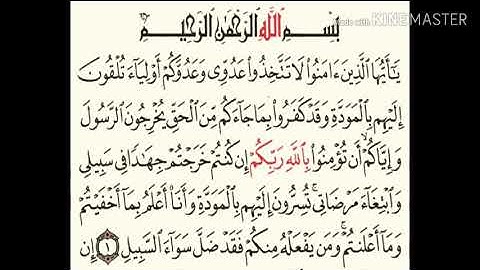 Made with KINEMASTER
بِسْمِ ٱللَّهِ ٱلرَّحْمَٰنِ ٱلرَّحِيمِ
يَٰٓأَيُّهَا ٱلَّذِينَ ءَامَنُوا۟ لَا تَتَّخِذُوا۟ عَدُوِّى وَعَدُوَّكُمْ أَوْلِيَآءَ تُلْقُونَ
إِلَيْهِم بِٱلْمَوَدَّةِ وَقَدْ كَفَرُوا۟ بِمَا جَآءَكُم مِّنَ ٱلْحَقِّ يُخْرِجُونَ ٱلرَّسُولَ
وَإِيَّاكُمْ أَن تُؤْمِنُوا۟ بِٱللَّهِ رَبِّكُمْ إِن كُنتُمْ خَرَجْتُمْ جِهَٰدًا فِى سَبِيلِى
وَٱبْتِغَآءَ مَرْضَاتِى ۚ تُسِرُّونَ إِلَيْهِم بِٱلْمَوَدَّةِ وَأَنَا۠ أَعْلَمُ بِمَآ أَخْفَيْتُمْ
وَمَآ أَعْلَنتُمْ ۚ وَمَن يَفْعَلْهُ مِنكُمْ فَقَدْ ضَلَّ سَوَآءَ ٱلسَّبِيلِ ١ إِن